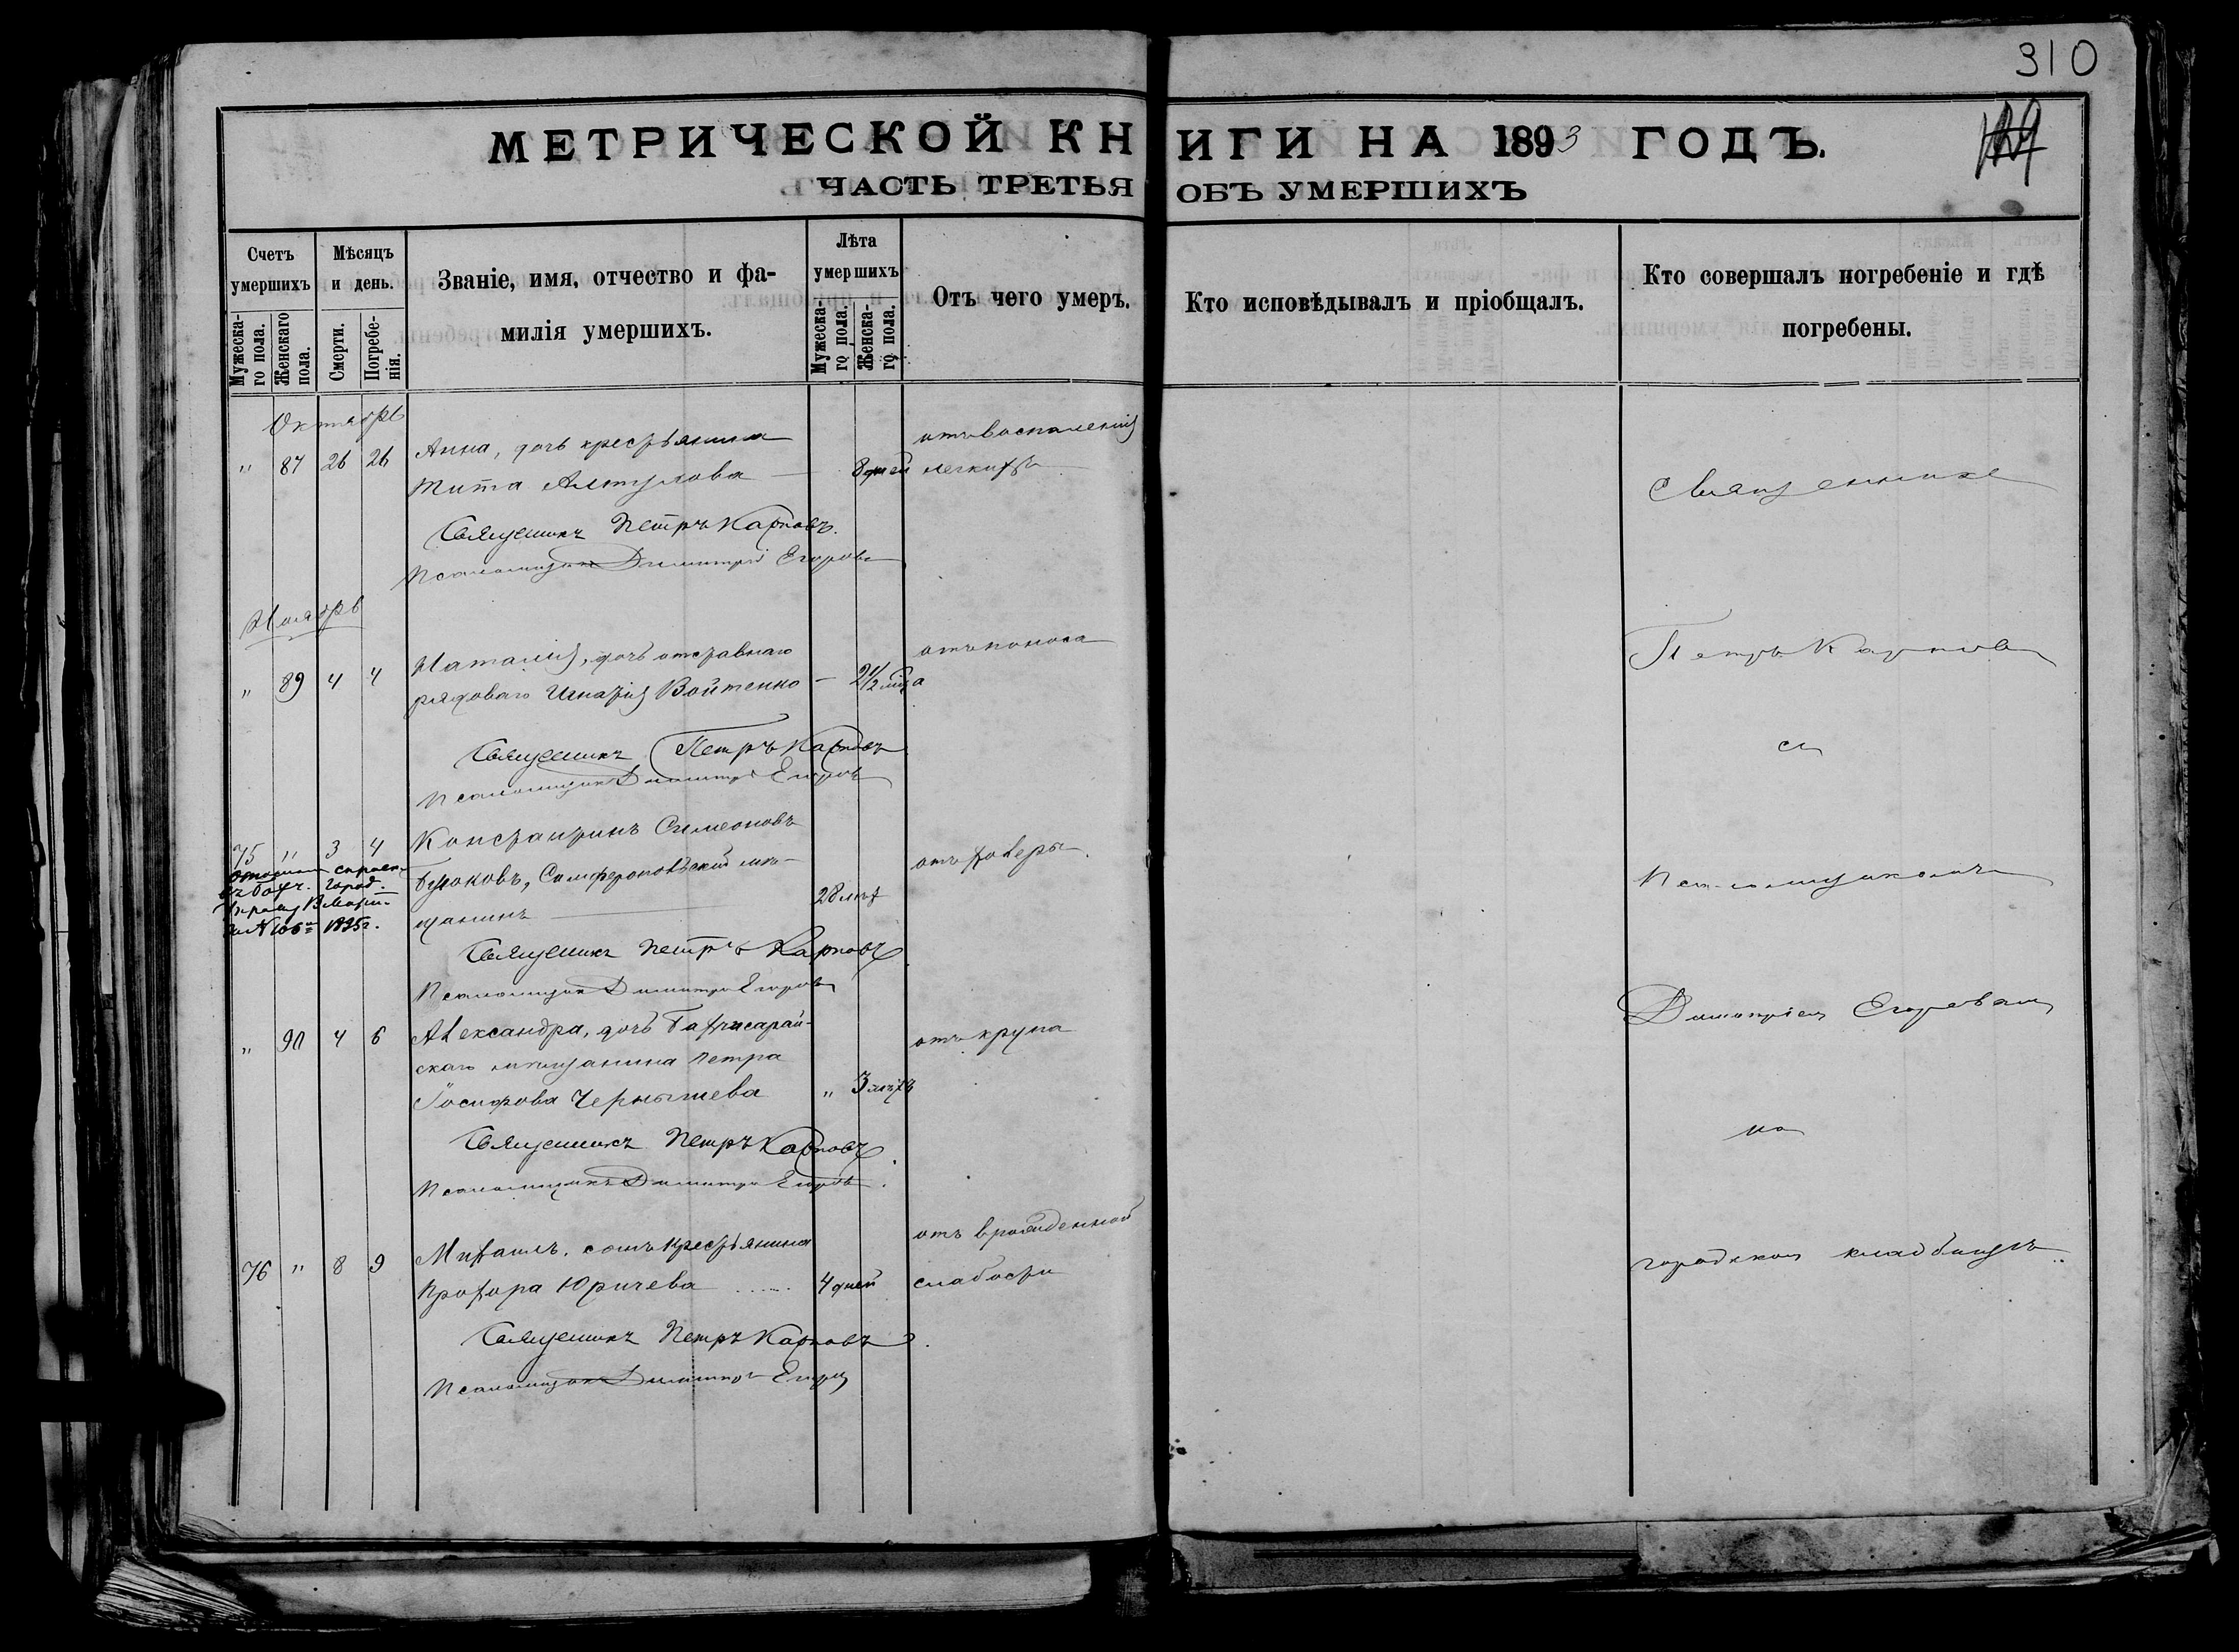 310
МЕТРИЧЕСКОЙ КНИГИ НА 1893 ГОДЪ.
ЧАСТЬ ТРЕТЬЯ ОБЪ УМЕРШИХЪ
Счетъ умершихъ
Мужеска-
го пола.
Женскаго
пола.
Мѣсяцъ
и день.
Смерти.
Погребе-
нія.
Званіе, имя, отчество и фа-
милія умершихъ.
Лѣта
умершихъ
Мужеска-
го пола.
Женска-
го пола.
Отъ чего умеръ.
Кто исповѣдывалъ и пріобщалъ.
Кто совершалъ погребеніе и гдѣ
погребены.
Октябрь
" 87 26 26 Анна, дочь крестьянина
Тита 8 дней
отъ воспаленія
легкихъ
Священникъ Петръ Карповъ.
Псаломщикъ Димитрій Егоровъ
Ноябрь
" 89 4 4 Наталія, дочь отставнаго
рядоваго Игнатія Войтенко — 2 1/2 мѣс
отъ поноса
Священникъ Петръ Карповъ
Псаломщикъ Димитрій Егоровъ
75 " 3 4 Константинъ Симеоновъ
Симферопольскій мѣ-
щанинъ 28 лѣт
отъ холеры.
1895 г.
Священникъ Петръ Карповъ
Псаломщикъ Димитрій Егоровъ
" 90 4 6 Александра, дочь Бахчисарай-
скаго мѣщанина Петра
Іосифова Чернышева " 3 лѣтъ
отъ крупа
Священникъ Петръ Карповъ
Псаломщикъ Димитрій Егоровъ.
76 " 8 9 Михаилъ, сынъ крестьянина
Прохора Юричева 4 дней
отъ врожденной
слабости
Священникъ Петръ Карповъ.
Псаломщикъ Димитрій Егоровъ
Священникъ
Петръ Карповъ
съ
Псаломщикомъ
Димитріемъ Егоровымъ
на
городскомъ кладбищѣ.